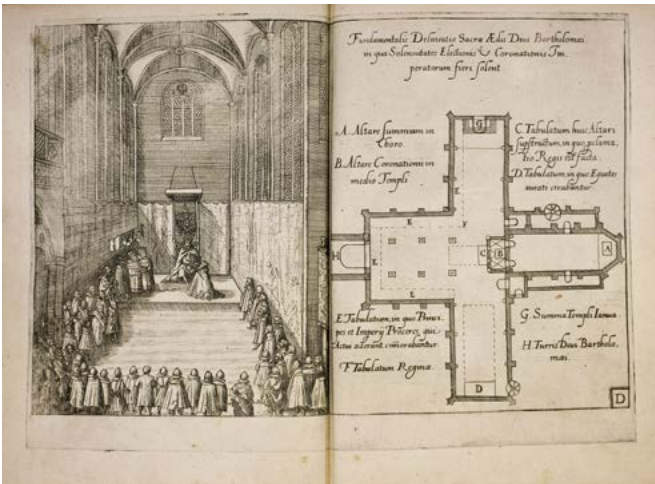 Fundamentalis Delineatio Sacræ Ædis Divi Bartholomæi
in qua Solennitates Electionis & Coronationis Im,
peratorum fieri solent
A. Altare summum in
Choro.
B. Altare Coronationis in
medio Templi
C. Tabulatum huic Altari
superstructum, in quo
Regis est facta
D. Tabulatum, in quo Equites
aurati creabantur
E. Tabulatum, in quo Princi,
pes et Imperij Proceres, qui
Actui aderant,
F. Tabulatum Reginæ.
G. Summa Templi Ianua
H. Turris Divi Bartholo,
mæi.
G
E
E
F
H
C
B
A
E
E
D
D